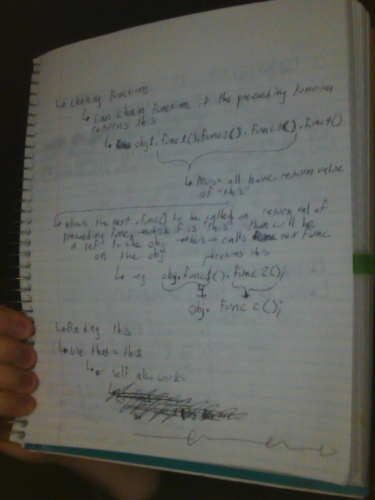 ↳ Chaining functions
↳ can chain functions if the preceding function
returns this
↳ obj1.func1().func2().func3().func4()
↳ Must all have return value
of "this"
↳ allows the next .func() to be called on return val of
preceding func, which if is "this" then will be
a ref to the obj this calls next func
on the obj
returns this
↳ eg obj.func1().func2();
obj.func2();
↳ Binding this
↳ use that = this
↳ or self also works